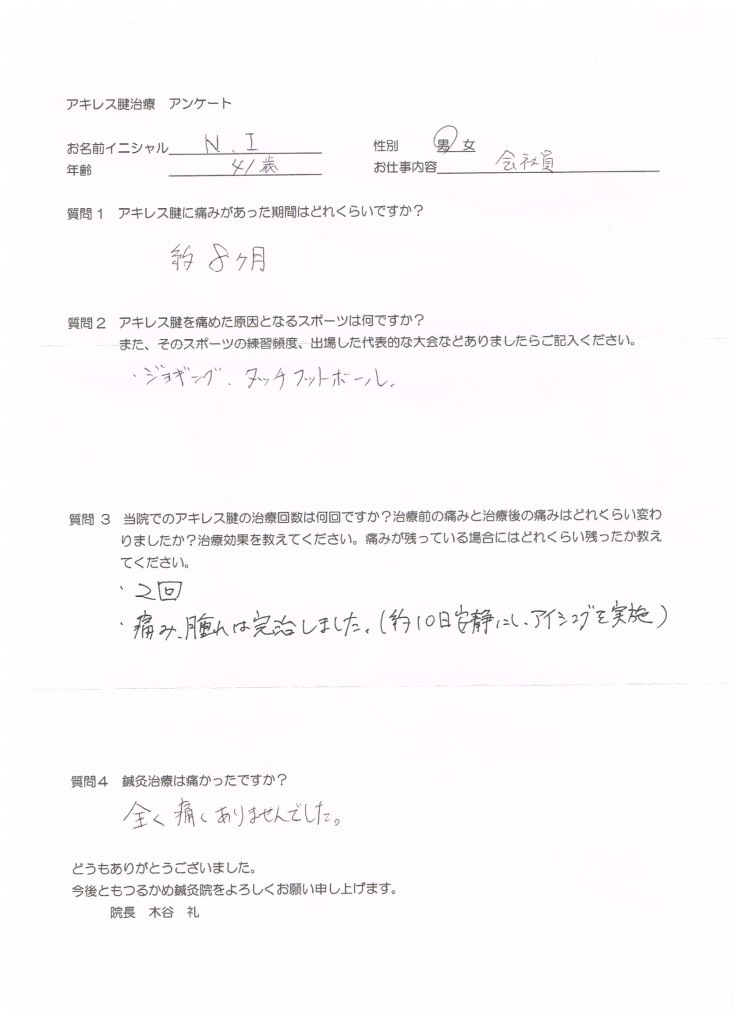 アキレス腱治療　アンケート
お名前イニシャル N、I　性別　男　女
年齢 41歳　お仕事内容 会社員
質問1　アキレス腱に痛みがあった期間はどれくらいですか？
約 8ヶ月
質問2　アキレス腱を痛めた原因となるスポーツは何ですか？
また、そのスポーツの練習頻度、出場した代表的な大会などありましたらご記入ください。
・ジョギング、タッチフットボール。
質問 3　当院でのアキレス腱の治療回数は何回ですか？治療前の痛みと治療後の痛みはどれくらい変わ
りましたか？治療効果を教えてください。痛みが残っている場合にはどれくらい残ったか教え
てください。
・2回
・痛み、腫れは完治しました。（約10日安静にし、アイシングを実施）
質問4　鍼灸治療は痛かったですか？
全く痛くありませんでした。
どうもありがとうございました。
今後ともつるかめ鍼灸院をよろしくお願い申し上げます。
院長　木谷　礼